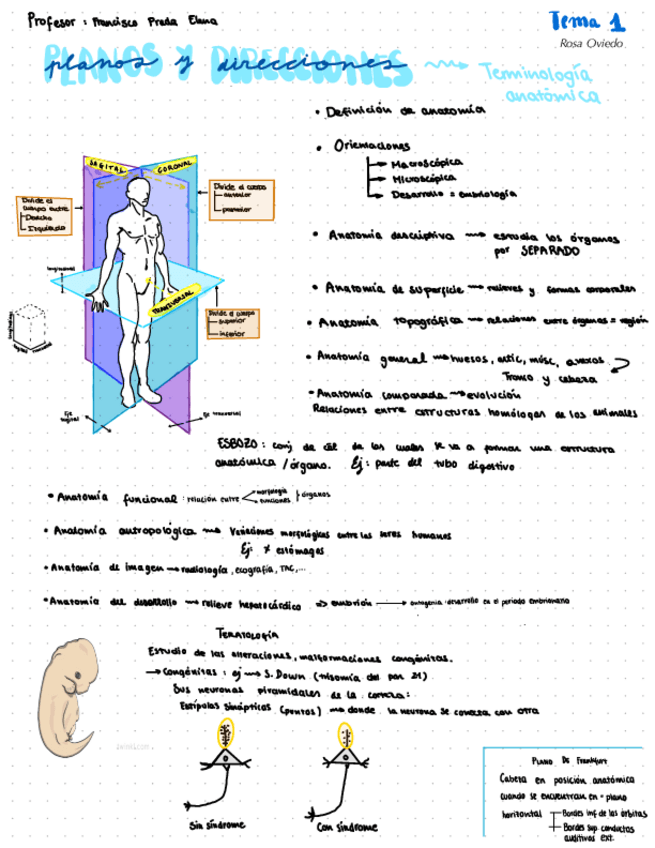 Profesor: Francisco Prada Elena
Tema 1
Rosa Oviedo
PLANOS Y DIRECCIONES
planos y direcciones
Terminología
anatómica
• Definición de anatomía
• Orientaciones
Macroscópica
Microscópica
Desarrollo = embriología
SAGITAL
CORONAL
Divide el
cuerpo entre
Derecho
Izquierdo
Divide el cuerpo
anterior
posterior
longitudinal
TRANSVERSAL
Divide el cuerpo
superior
inferior
longitudinal
sagital transversal
Eje
sagital
Eje transversal
• Anatomía descriptiva → estudia los órganos
por SEPARADO
• Anatomía de superficie → relieves y formas corporales
• Anatomía topográfica → relaciones entre órganos = región
• Anatomía general → huesos, artic, músc,
Tronco y cabeza
• Anatomía comparada → evolución
Relaciones entre estructuras homólogas de los animales
ESBOZO: conj de cél de las cuales se va a formar una estructura
anatómica / órgano. Ej: parte del tubo digestivo
• Anatomía funcional: relación entre morfología
funciones
órganos
• Anatomía antropológica → Variaciones morfológicas entre los seres humanos
Ej: ≠ estómagos
• Anatomía de imagen → radiología, ecografía, TAC,...
• Anatomía del desarrollo → relieve hepatocárdico ⇒ embrión → ontogenia: desarrollo en el periodo embrionario
TERATOLOGÍA
Estudio de las alteraciones, malformaciones congénitas.
→ Congénitas: ej → S. Down (trisomía del par 21)
Sus neuronas piramidales de la corteza:
Espículas sinápticas (puntos) → donde la neurona se conecta con otra
Sin síndrome
Con síndrome
PLANO DE Frankfurt
Cabeza en posición anatómica
cuando se encuentran en = plano
horizontal
Bordes inf de las órbitas
Bordes sup conductos
auditivos ext.